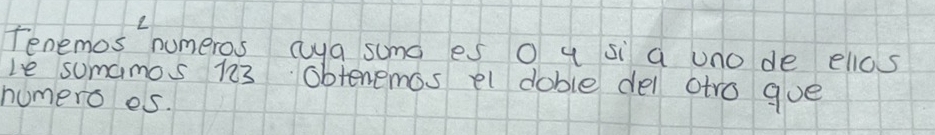 Tenemos 2 numeros cuya suma es 0 y si a uno de ellos
le sumamos 123 obtenemos el doble del otro que
numero es.